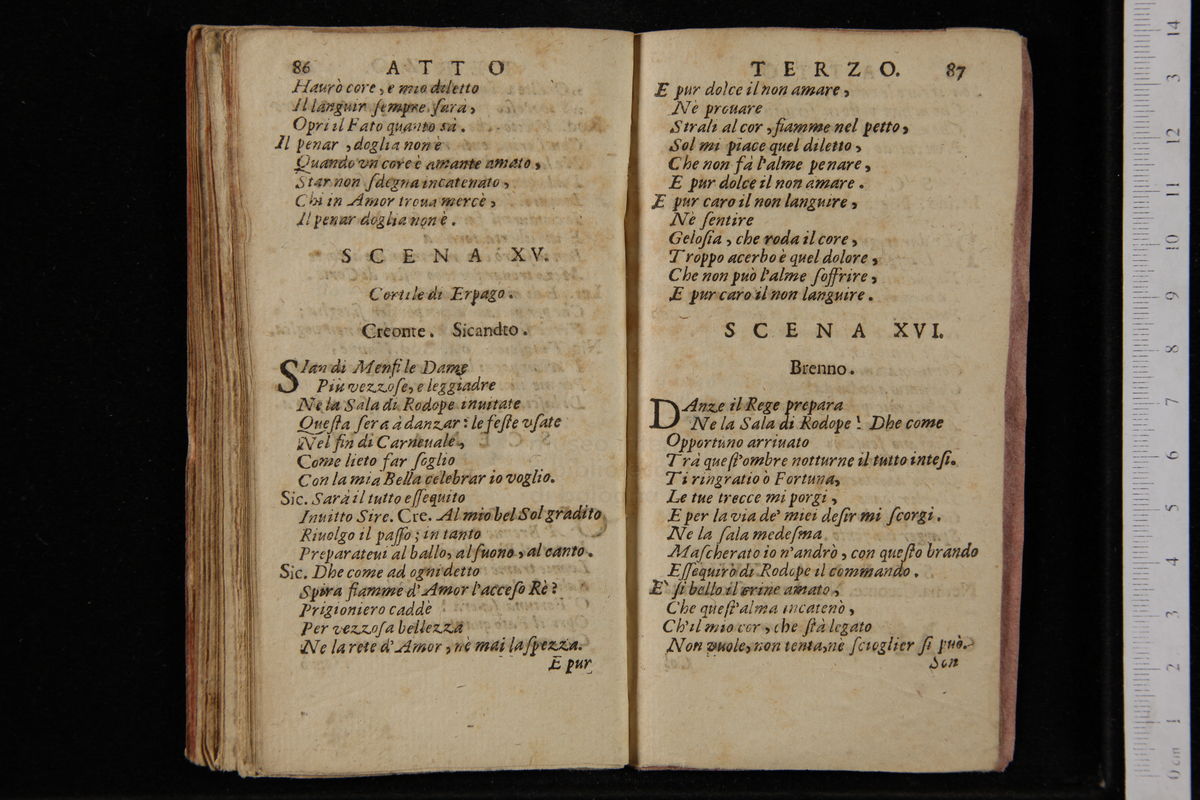 86 ATTO
Haurò core, e mio diletto
Il languir ſempre ſarà,
Opri il Fato quanto sà.
Il penar, doglia non è
Quando vn core è amante amato,
Star non ſdegna incatenato,
Chi in Amor troua mercè,
Il penar doglia non è.
SCENA XV.
Cortile di Erpago.
Creonte. Sicandro.
SIan di Menfi le Dame
Più vezzoſe, e leggiadre
Ne la Sala di Rodope inuitate
Queſta ſera à danzar: le feſte vſate
Nel fin di Carneuale,
Come lieto far ſoglio
Con la mia Bella celebrar io voglio.
Sic. Sarà il tutto eſſequito
Inuitto Sire. Cre. Al mio bel Sol gradito
Riuolgo il paſſo; in tanto
Preparateui al ballo, al ſuono, al canto.
Sic. Dhe come ad ogni detto
Spira fiamme d'Amor l'acceſo Rè?
Prigioniero caddè
Per vezzoſa bellezza
Ne la rete d'Amor, nè mai la ſpezza.
E pur
TERZO. 87
E pur dolce il non amare,
Nè prouare
Strali al cor, fiamme nel petto,
Sol mi piace quel diletto,
Che non fà l'alme penare,
E pur dolce il non amare.
E pur caro il non languire,
Nè ſentire
Geloſia, che roda il core,
Troppo acerbo è quel dolore,
Che non può l'alme ſoffrire,
E pur caro il non languire.
SCENA XVI.
Brenno.
DAnze il Rege prepara
Ne la Sala di Rodope! Dhe come
Opportuno arriuato
Trà queſt'ombre notturne il tutto inteſi.
Ti ringratio ò Fortuna,
Le tue trecce mi porgi,
E per la via de' miei deſir mi ſcorgi.
Ne la ſala medeſma
Maſcherato io n'andrò, con queſto brando
Eſſequirò di Rodope il commando.
E' ſi bello il crine amato,
Che queſt'alma incatenò,
Ch'il mio cor, che ſtà legato
Non vuole, non tenta, nè ſcioglier ſi può.
Son
14
13
12
11
10
9
8
7
6
5
4
3
2
1
0 cm